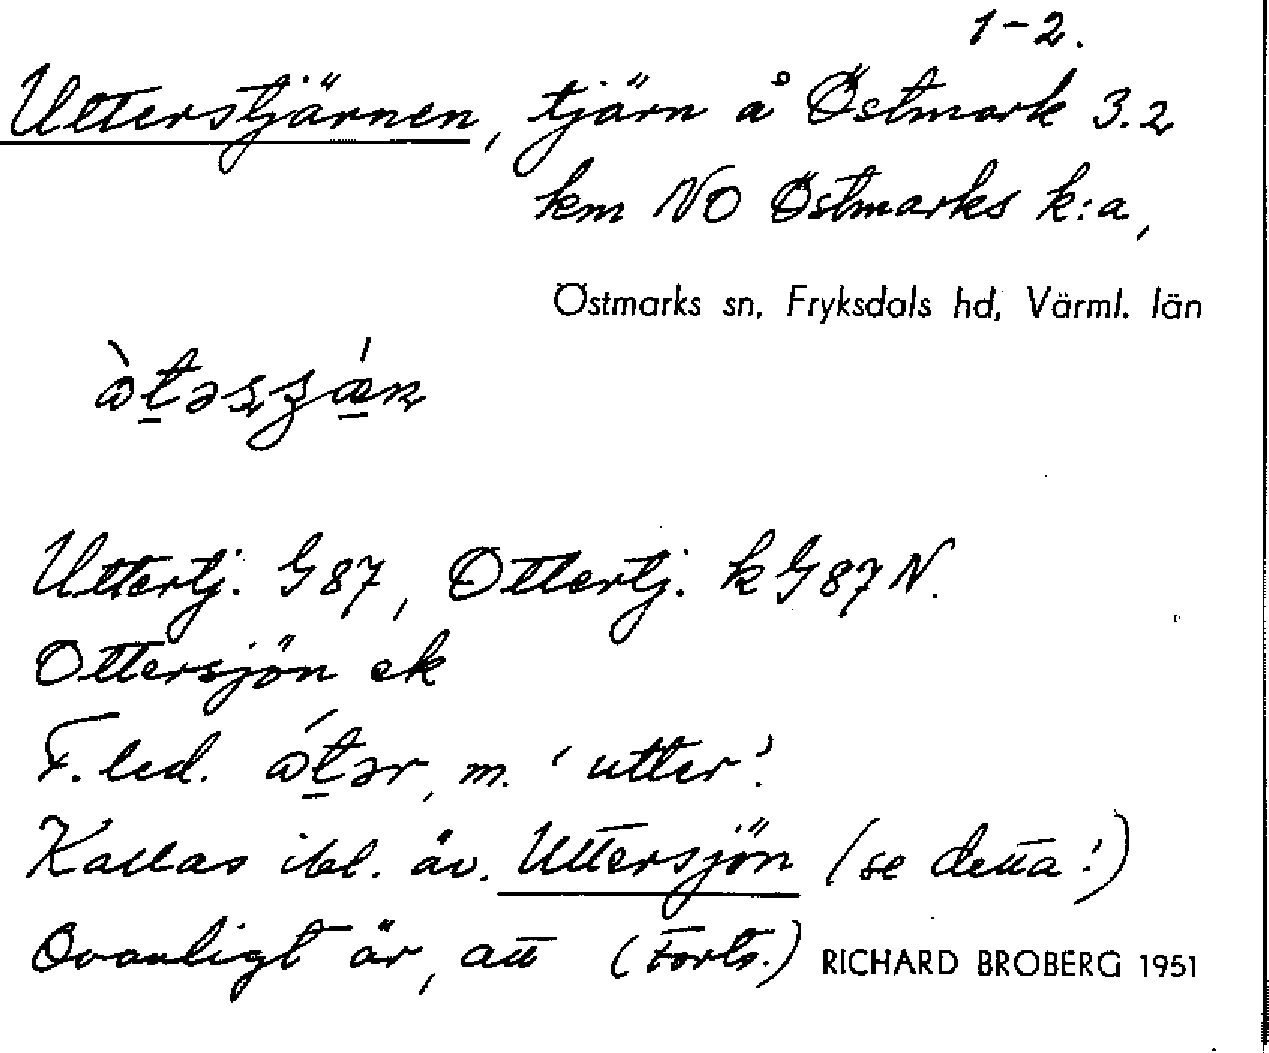 1-2.
Utterstjärnen, tjärn å Östmark 3.2
km NO Östmarks k:a,
Östmarks sn, Fryksdals hd, Värml. län
Uttertj. G87, Ottertj. kG87N.
Ottersjön ek
F.led. m. 'utter'.
Kallas ibl. äv. Uttersjön (se detta!)
Ovanligt är, att (Forts.) RICHARD BROBERG 1951